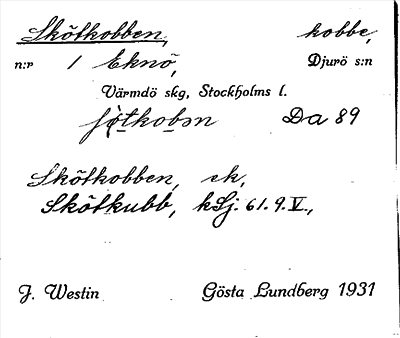 Skötkobben, kobbe,
n:r 1 Eknö, Djurö s:n
Värmdö skg, Stockholms l.
Da 89
Skötkobben, ek,
Skötkubb, kSj. 61. 9. V.,
J. Westin Gösta Lundberg 1931